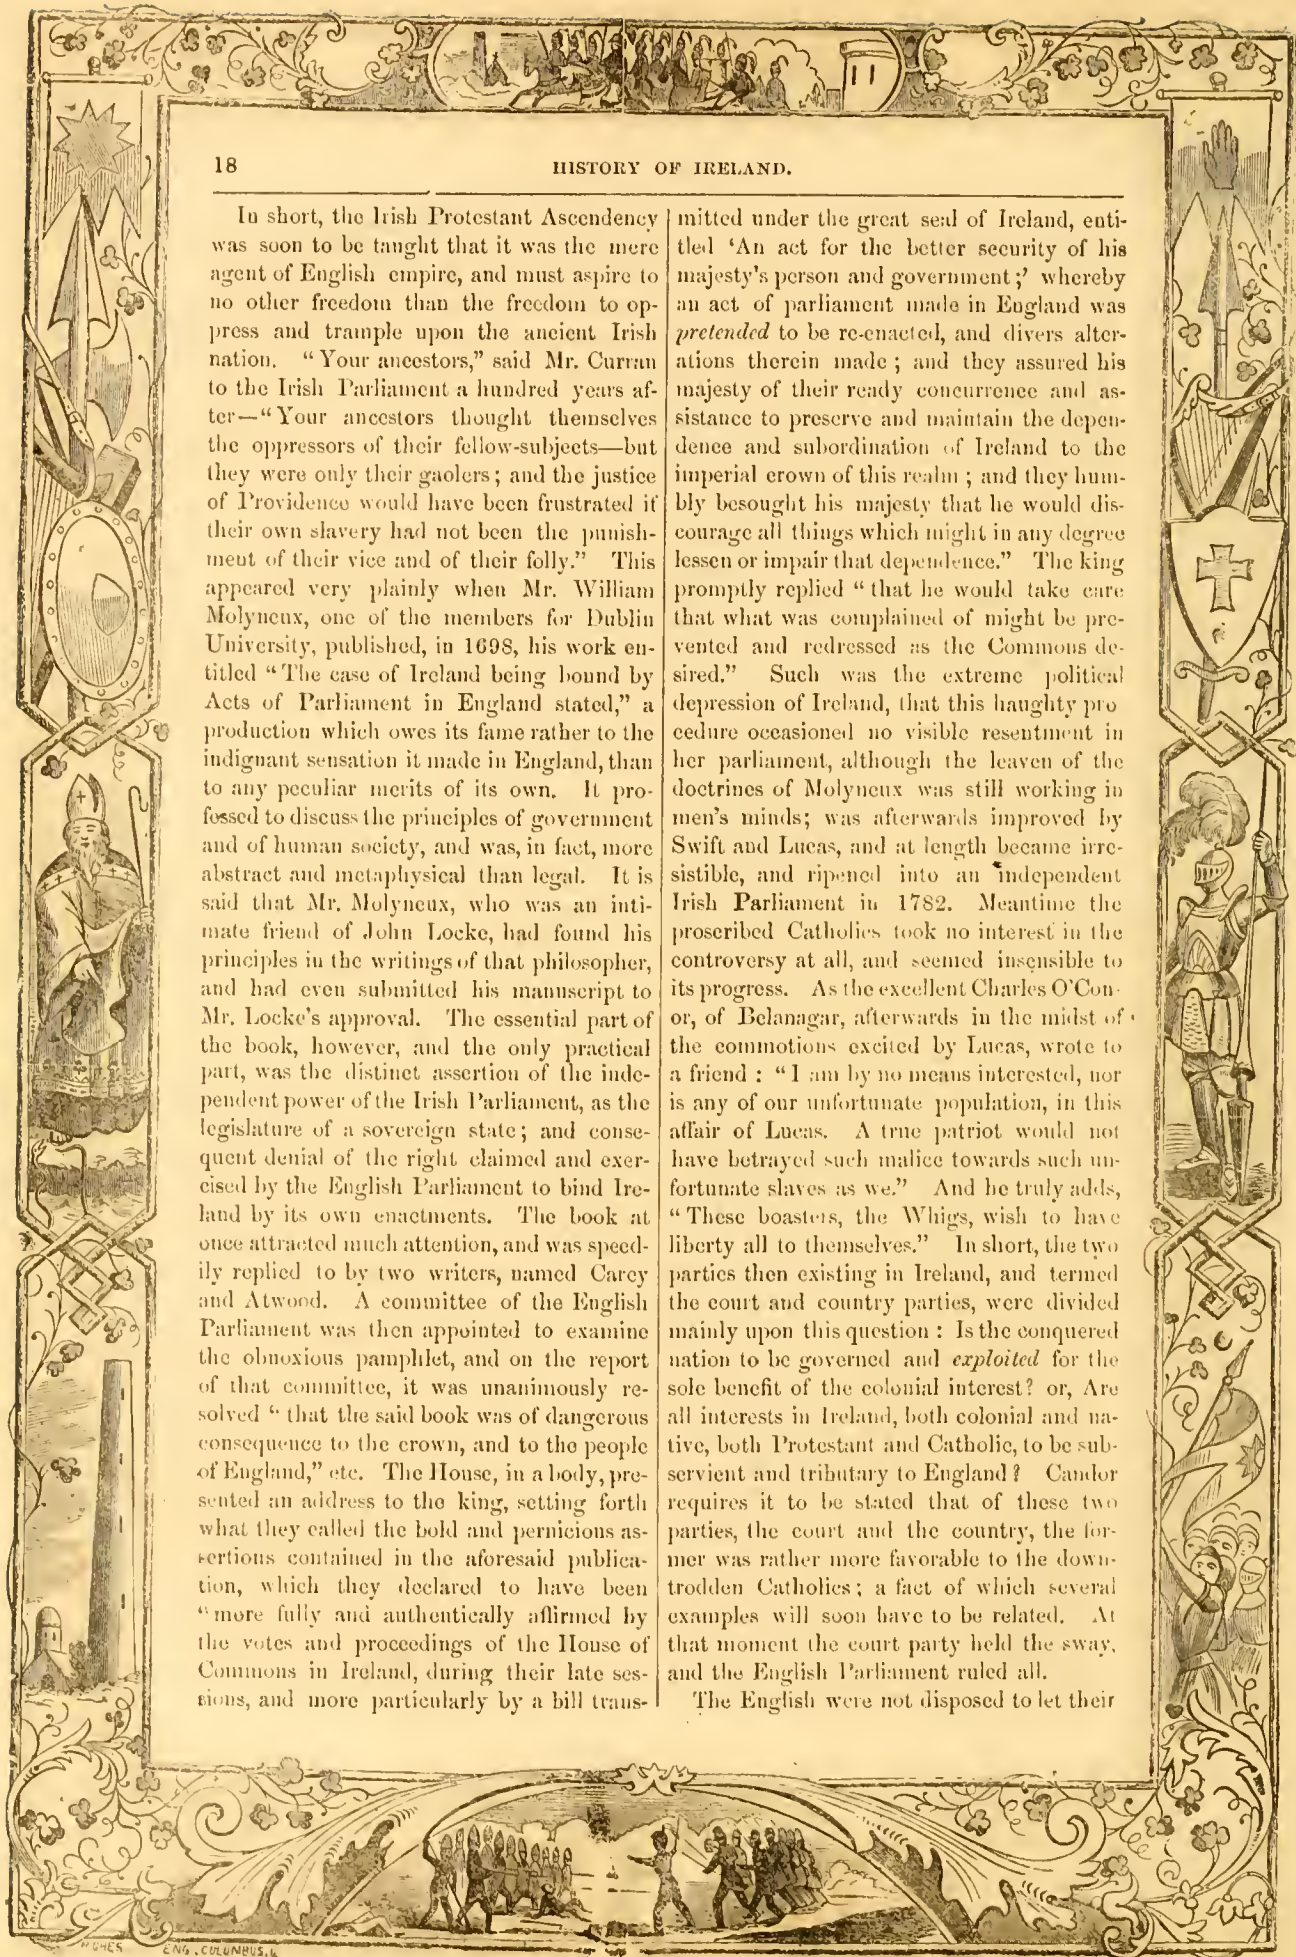 18
HISTORY OF IRELAND.
In short, the Irish Protestant Ascendency
was soon to be taught that it was the mere
agent of English empire, and must aspire to
no other freedom than the freedom to op-
press and trample upon the ancient Irish
nation. “Your ancestors,” said Mr. Curran
to the Irish Parliament a hundred years af-
ter—“Your ancestors thought themselves
the oppressors of their fellow-subjects—but
they were only their gaolers; and the justice
of Providence would have been frustrated if
their own slavery had not been the punish-
ment of their vice and of their folly.” This
appeared very plainly when Mr. William
Molyneux, one of the members for Dublin
University, published, in 1698, his work en-
titled “The case of Ireland being bound by
Acts of Parliament in England stated,” a
production which owes its fame rather to the
indignant sensation it made in England, than
to any peculiar merits of its own. It pro-
fessed to discuss the principles of government
and of human society, and was, in fact, more
abstract and metaphysical than legal. It is
said that Mr. Molyneux, who was an inti-
mate friend of John Locke, had found his
principles in the writings of that philosopher,
and had even submitted his manuscript to
Mr. Locke's approval. The essential part of
the book, however, and the only practical
part, was the distinct assertion of the inde-
pendent power of the Irish Parliament, as the
legislature of a sovereign state; and conse-
quent denial of the right claimed and exer-
cised by the English Parliament to bind Ire-
land by its own enactments. The book at
once attracted much attention, and was speed-
ily replied to by two writers, named Carey
and Atwood. A committee of the English
Parliament was then appointed to examine
the obnoxious pamphlet, and on the report
of that committee, it was unanimously re-
solved “that the said book was of dangerous
consequence to the crown, and to the people
of England,” etc. The House, in a body, pre-
sented an address to the king, setting forth
what they called the bold and pernicious as-
sertions contained in the aforesaid publica-
tion, which they declared to have been
“more fully and authentically affirmed by
the votes and proceedings of the House of
Commons in Ireland, during their late ses-
sions, and more particularly by a bill trans-
mitted under the great seal of Ireland, enti-
tled ‘An act for the better security of his
majesty's person and government;’ whereby
an act of parliament made in England was
pretended to be re-enacted, and divers alter-
ations therein made; and they assured his
majesty of their ready concurrence and as-
sistance to preserve and maintain the depen-
dence and subordination of Ireland to the
imperial crown of this realm; and they hum-
bly besought his majesty that he would dis-
courage all things which might in any degree
lessen or impair that dependence.” The king
promptly replied “that he would take care
that what was complained of might be pre-
vented and redressed as the Commons de-
sired.” Such was the extreme political
depression of Ireland, that this haughty pro
cedure occasioned no visible resentment in
her parliament, although the leaven of the
doctrines of Molyneux was still working in
men's minds; was afterwards improved by
Swift and Lucas, and at length became irre-
sistible, and ripened into an independent
Irish Parliament in 1782. Meantime the
proscribed Catholics took no interest in the
controversy at all, and seemed insensible to
its progress. As the excellent Charles O'Con-
or, of Belanagar, afterwards in the midst of
the commotions excited by Lucas, wrote to
a friend: “I am by no means interested, nor
is any of our unfortunate population, in this
affair of Lucas. A true patriot would not
have betrayed such malice towards such un-
fortunate slaves as we.” And he truly adds,
“These boasters, the Whigs, wish to have
liberty all to themselves.” In short, the two
parties then existing in Ireland, and termed
the court and country parties, were divided
mainly upon this question: Is the conquered
nation to be governed and exploited for the
sole benefit of the colonial interest? or, Are
all interests in Ireland, both colonial and na-
tive, both Protestant and Catholic, to be sub-
servient and tributary to England? Candor
requires it to be stated that of these two
parties, the court and the country, the for-
mer was rather more favorable to the down-
trodden Catholics; a fact of which several
examples will soon have to be related. At
that moment the court party held the sway,
and the English Parliament ruled all.
The English were not disposed to let their
ENG. COLUMBUS.